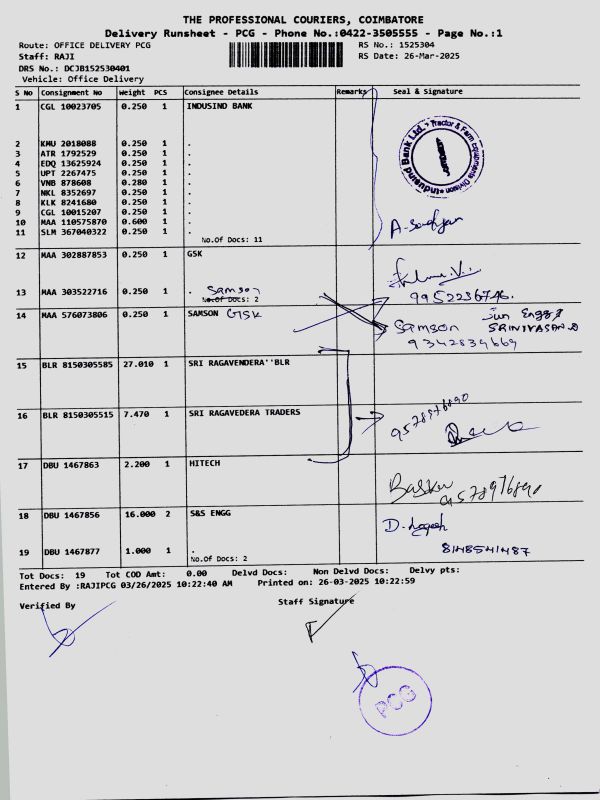 THE PROFESSIONAL COURIERS, COIMBATORE
Delivery Runsheet - PCG - Phone No.:0422-3505555 - Page No.:1
Route: OFFICE DELIVERY PCG RS No.: 1525304
Staff: RAJI RS Date: 26-Mar-2025
DRS No.: DCJB152530401
Vehicle: Office Delivery
S No Consignment No Weight PCS Consignee Details Remarks Seal & Signature
1 CGL 10023705 0.250 1 INDUSIND BANK
IndusInd Bank Ltd. Tractor & Farm Equipments Division
2 KMU 2018088 0.250 1 .
3 ATR 1792529 0.250 1 .
4 EDQ 13625924 0.250 1 .
5 UPT 2267475 0.250 1 .
6 VNB 878608 0.280 1 .
7 NKL 8352697 0.250 1 .
8 KLK 8241680 0.250 1 .
9 CGL 10015207 0.250 1 .
10 MAA 110575870 0.600 1 .
11 SLM 367040322 0.250 1 .
No.Of Docs: 11
12 MAA 302887853 0.250 1 GSK
13 MAA 303522716 0.250 1 . Samson 9952236746.
No.Of Docs: 2
14 MAA 576073806 0.250 1 SAMSON GSK Samson SRINIVASAN
9342839669
15 BLR 8150305585 27.010 1 SRI RAGAVENDERA''BLR
16 BLR 8150305515 7.470 1 SRI RAGAVEDERA TRADERS 9578976890
17 DBU 1467863 2.200 1 HITECH
Baskar 9578976890
18 DBU 1467856 16.000 2 S&S ENGG D. Logesh
19 DBU 1467877 1.000 1 . 8148541487
No.Of Docs: 2
Tot Docs: 19 Tot COD Amt: 0.00 Delvd Docs: Non Delvd Docs: Delvy pts:
Entered By :RAJIPCG 03/26/2025 10:22:40 AM Printed on: 26-03-2025 10:22:59
Verified By Staff Signature
PCG